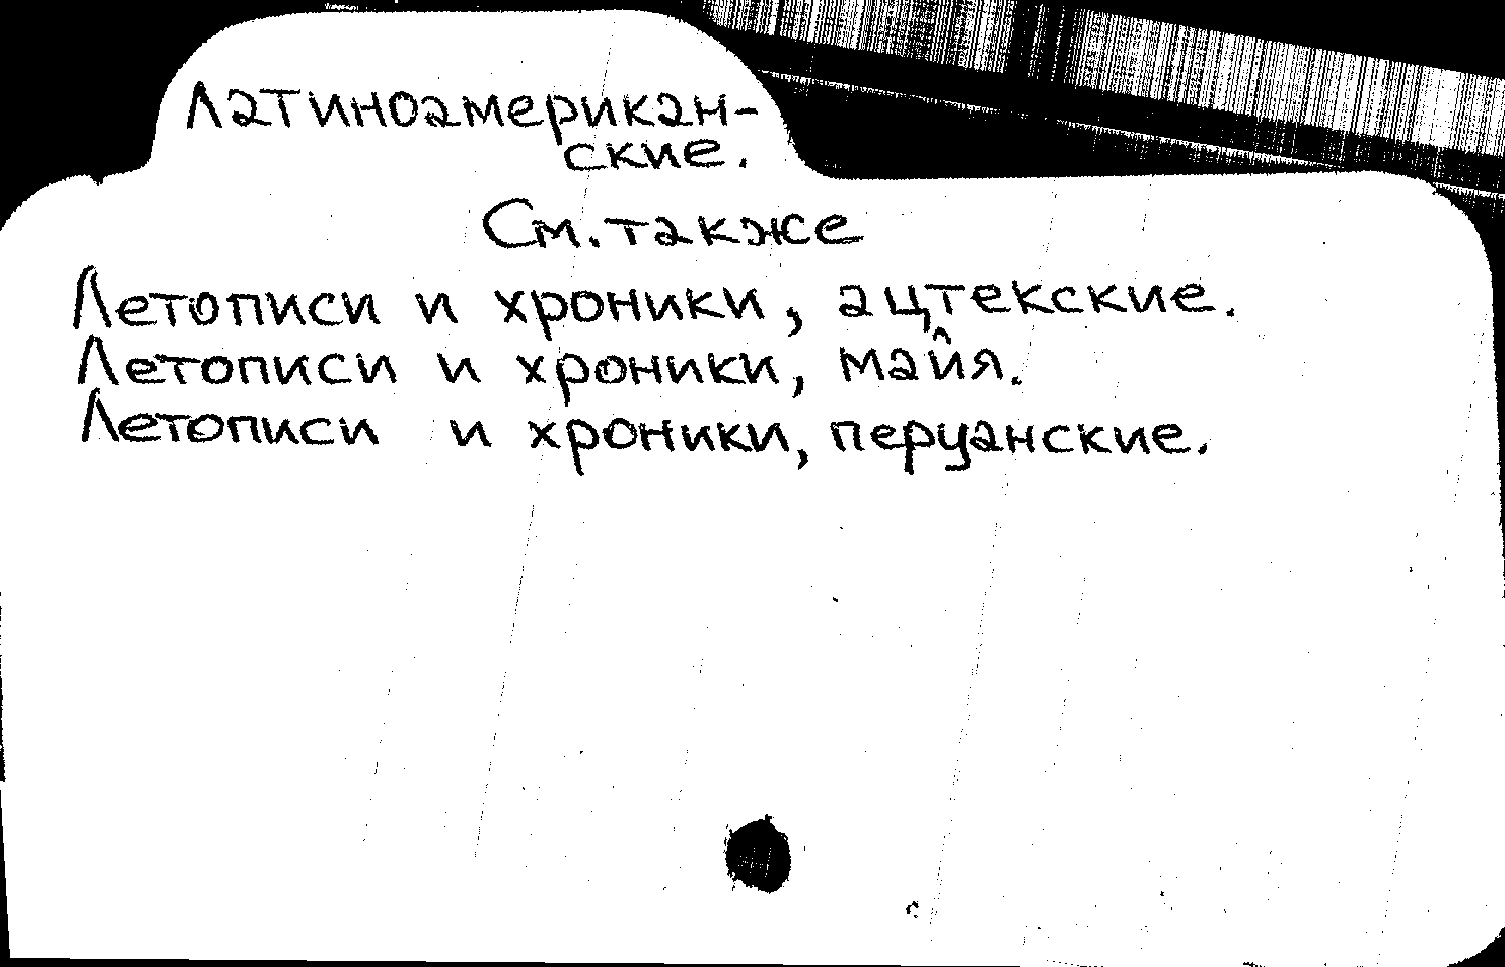 Латиноамерикан-
ские.
См. также
Летописи и хроники, ацтекские.
Летописи и хроники, майя.
Летописи и хроники, перуанские.